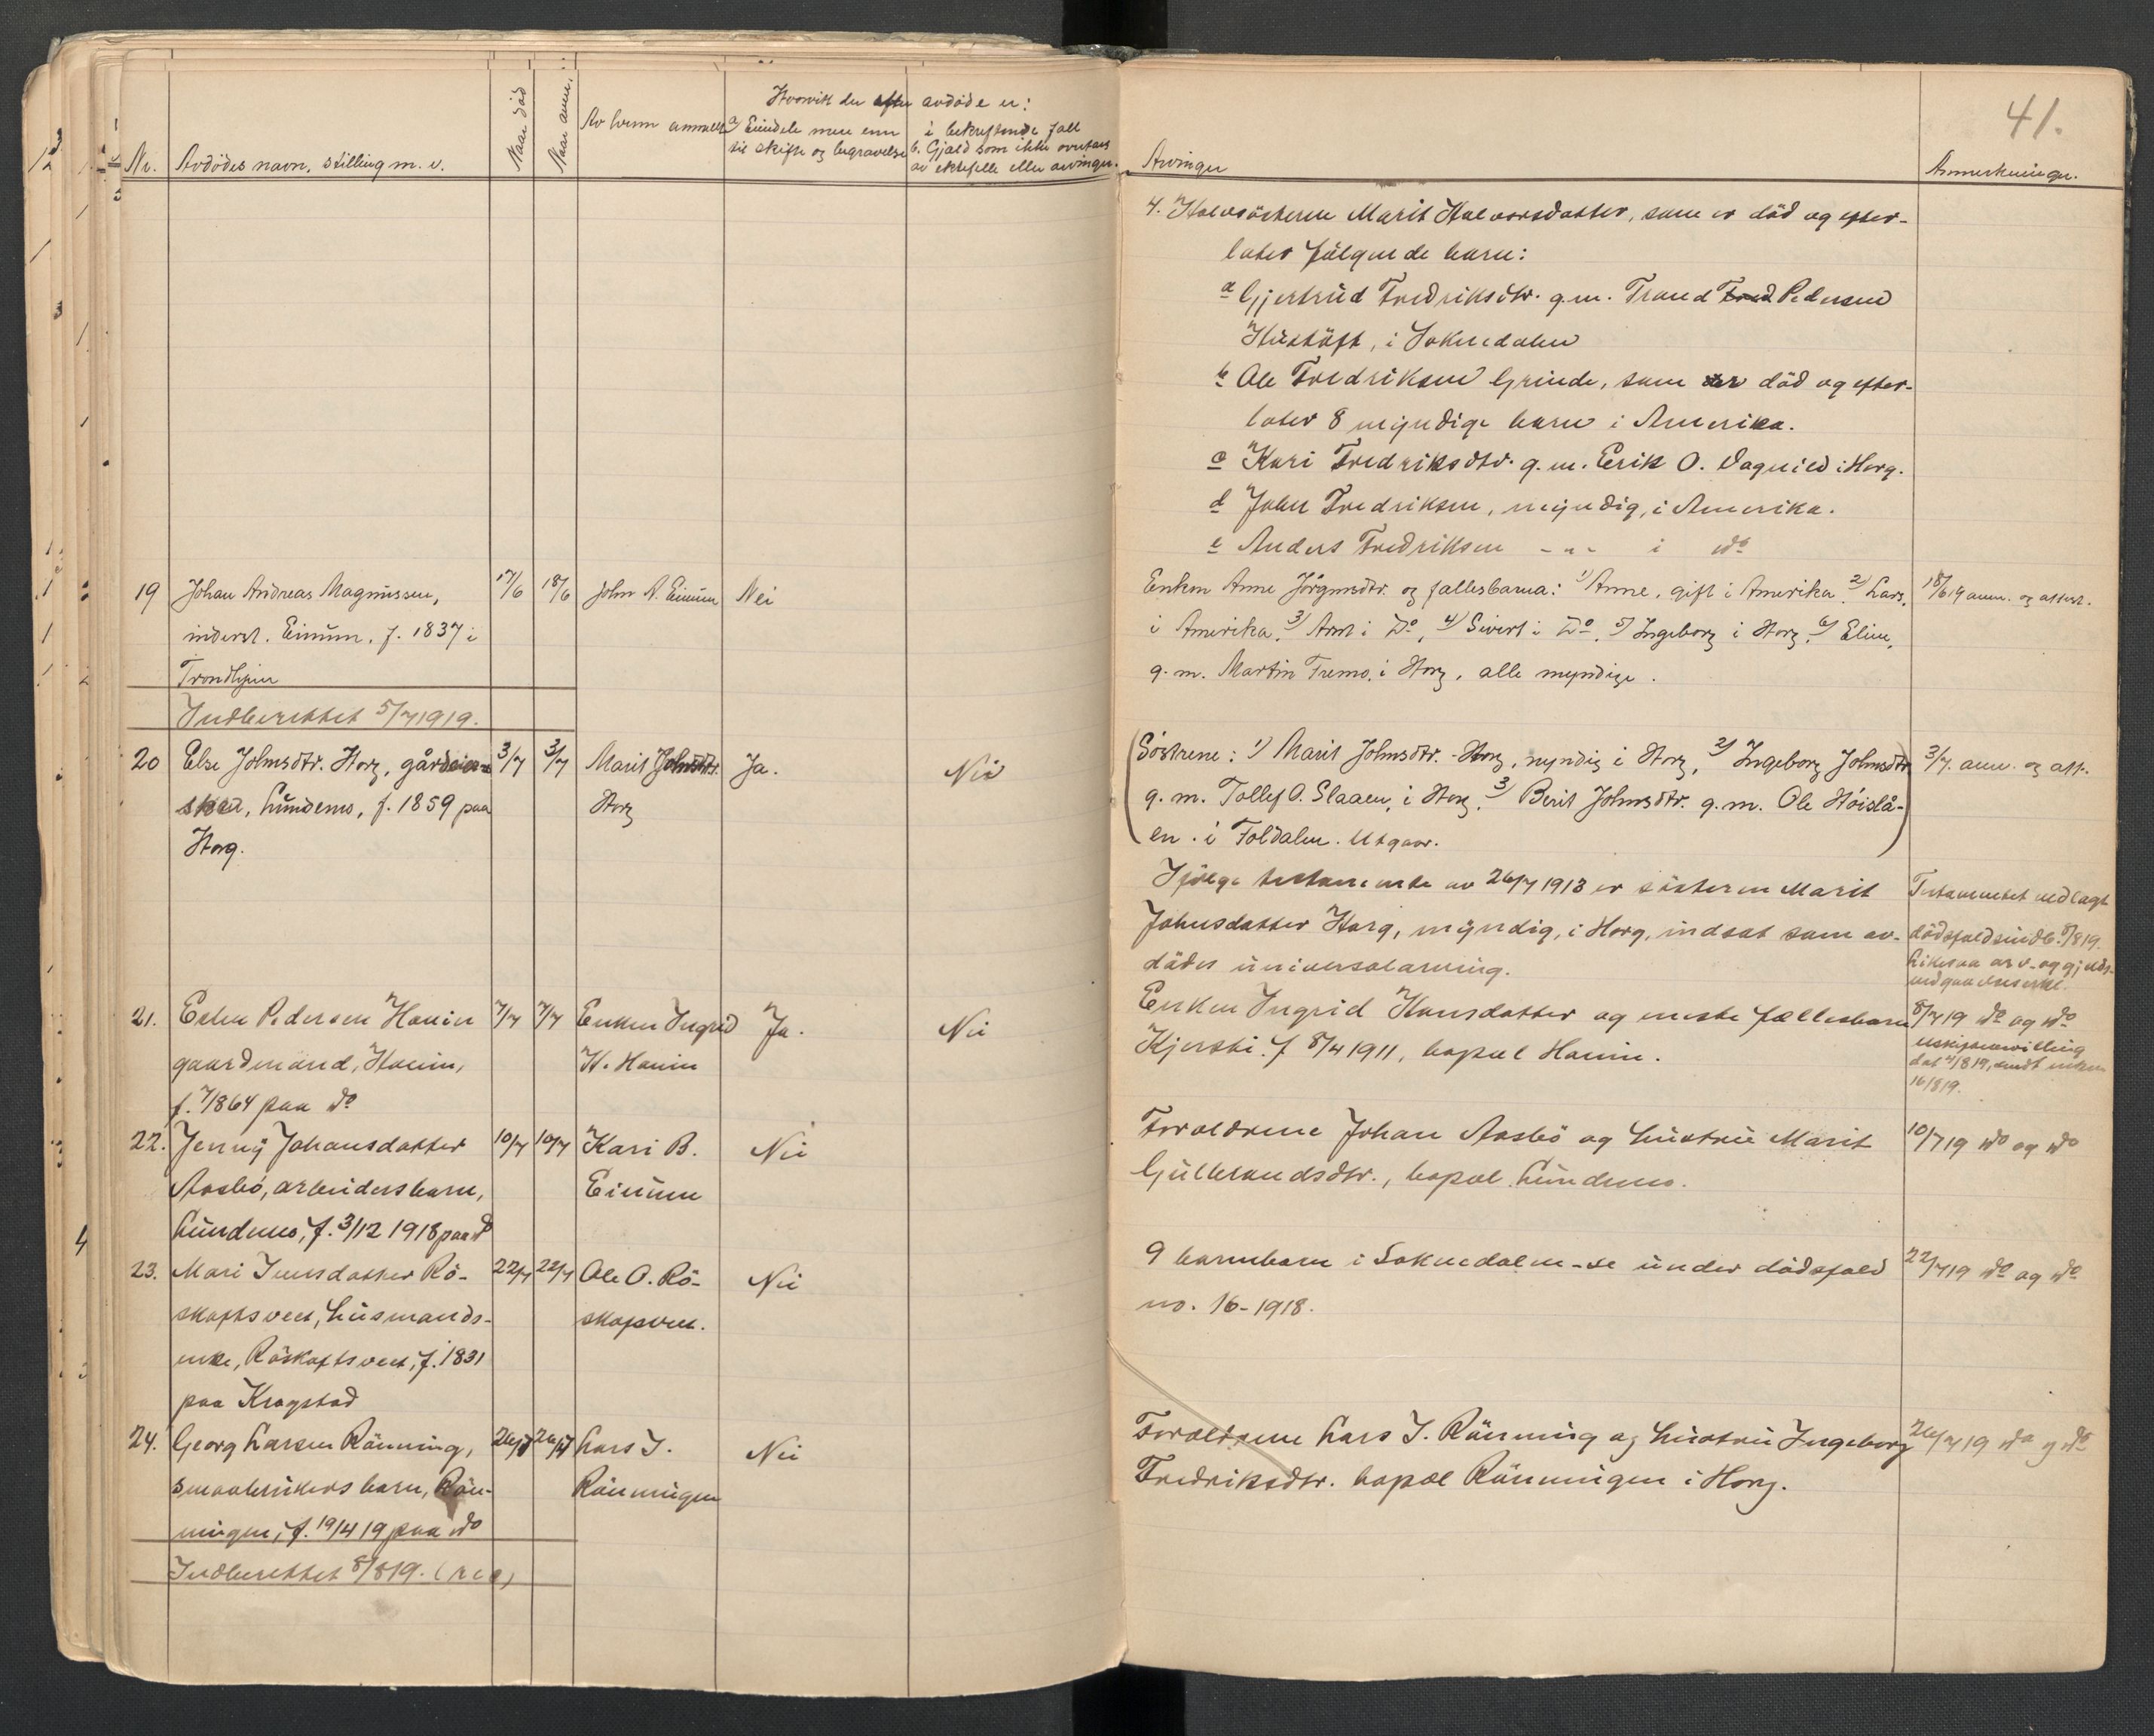 41.
Nr.
Avdödes navn, stilling m. v.
Naar död
Naar anm.
Av hvem anmeldt
Hvorvidt der efter avdöde er:
a) Eiendele mere enn
til skifte og begravelse
i bekreftende fall
b. Gjæld som ikke overtaes
av ektefelle eller arvinger.
Arvinger
Anmerkninger.
4. Halvsösteren Marit Halvorsdatter, som er död og efter-
later fölgende barn:
a Gjertrud Fredriksdtr. g.m. Trond Fred Pedersen
Hustöft, i Soknedalen
b Ole Fredriksen Grinde, som er död og efter-
later 8 myndige barn i Amerika.
c Kari Fredriksdtr. g.m. Eerik O. Vagnild i Horg.
d John Fredriksen, myndig, i Amerika.
e Anders Fredriksen - " - i do
19
Johan Andreas Magnussen,
inderst. Einum, f. 1837 i
Trondhjem
17/6
18/6
John A. Einum
Nei
Enken Anne Jörgensdtr. og fallesbarna: 1) Anne, gift i Amerika. 2) Lars,
i Amerika. 3) Arnt i Do, 4) Sivert i Do. 5) Ingeborg i Horg. 6) Eline,
g. m. Martin Fremo, i Horg, alle myndige.
18/6 19 anm. og attest.
Indberettet 5/7 1919.
20
Else Johnsdtr. Horg, gårdeier-
ske, Lundemo, f. 1859 paa
Horg.
3/7
3/7
Marit Johnsdtr.
Horg
Ja.
Nei
(Söstrene: 1) Marit Johnsdtr. Horg, myndig i Horg, 2) Ingeborg Johnsdtr
g. m. Tollef O. Slaaen, i Horg. 3) Berit Johnsdtr. g. m. Ole Höislå-
en. i Foldalen. Utgaar.)
3/7. anm. og att.
Ifölge testamente av 26/7 1913 er sösteren Marit
Johnsdatter Horg, myndig, i Horg, indsat som av-
dödes universalarving.
Testamentet vedlagt
dödsfaldsindb. 8/8 19.
Likesaa arv- og gjelds-
vedgaaelseserkl.
21.
Esten Pedersen Hovin
gaardmand, Hovin,
f. 7/864 paa do
7/7
7/7
Enken Ingrid
H. Hovin
Ja.
Nei
Enken Ingrid Hansdatter og eneste fællesbarn
Kjersti. f 8/4 1911, bopæl Hovin.
8/7 19 do og do
Uskiftebevilling
dat 4/8 19, sendt enken
16/8 19.
22.
Jenny Johansdatter
Aasbö, arbeidersbarn,
Lundemo, f. 3/12 1918 paa do
10/7
10/7
Kari B.
Einum
Nei
Foreldrene Johan Aasbö og hustru Marit
Gulbrandsdtr., bopæl Lundemo.
10/7 19 do og do
23.
Mari Jensdatter Rö-
skaftsveet, husmands-
enke, Röskaftsveet, f. 1831
paa Krogstad
22/7
22/7
Ole O. Rö-
skaftveet.
Nei
9 barnebarn i Soknedalen - se under dödsfald
no. 16-1918.
22/7 19 do og do
24.
Georg Larsen Rönning,
smaabrukers barn, Rön-
ningen, f. 19/4 19 paa do
26/7
26/7
Lars J.
Rönningen
Nei
Foreldrene Lars J. Rönning og hustru Ingeborg
Fredriksdtr. bopæl Rönningen i Horg.
26/7 19 do og do
Indberettet 8/8 19.